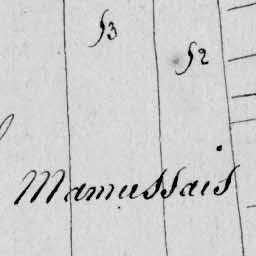 53
52
Mamussais